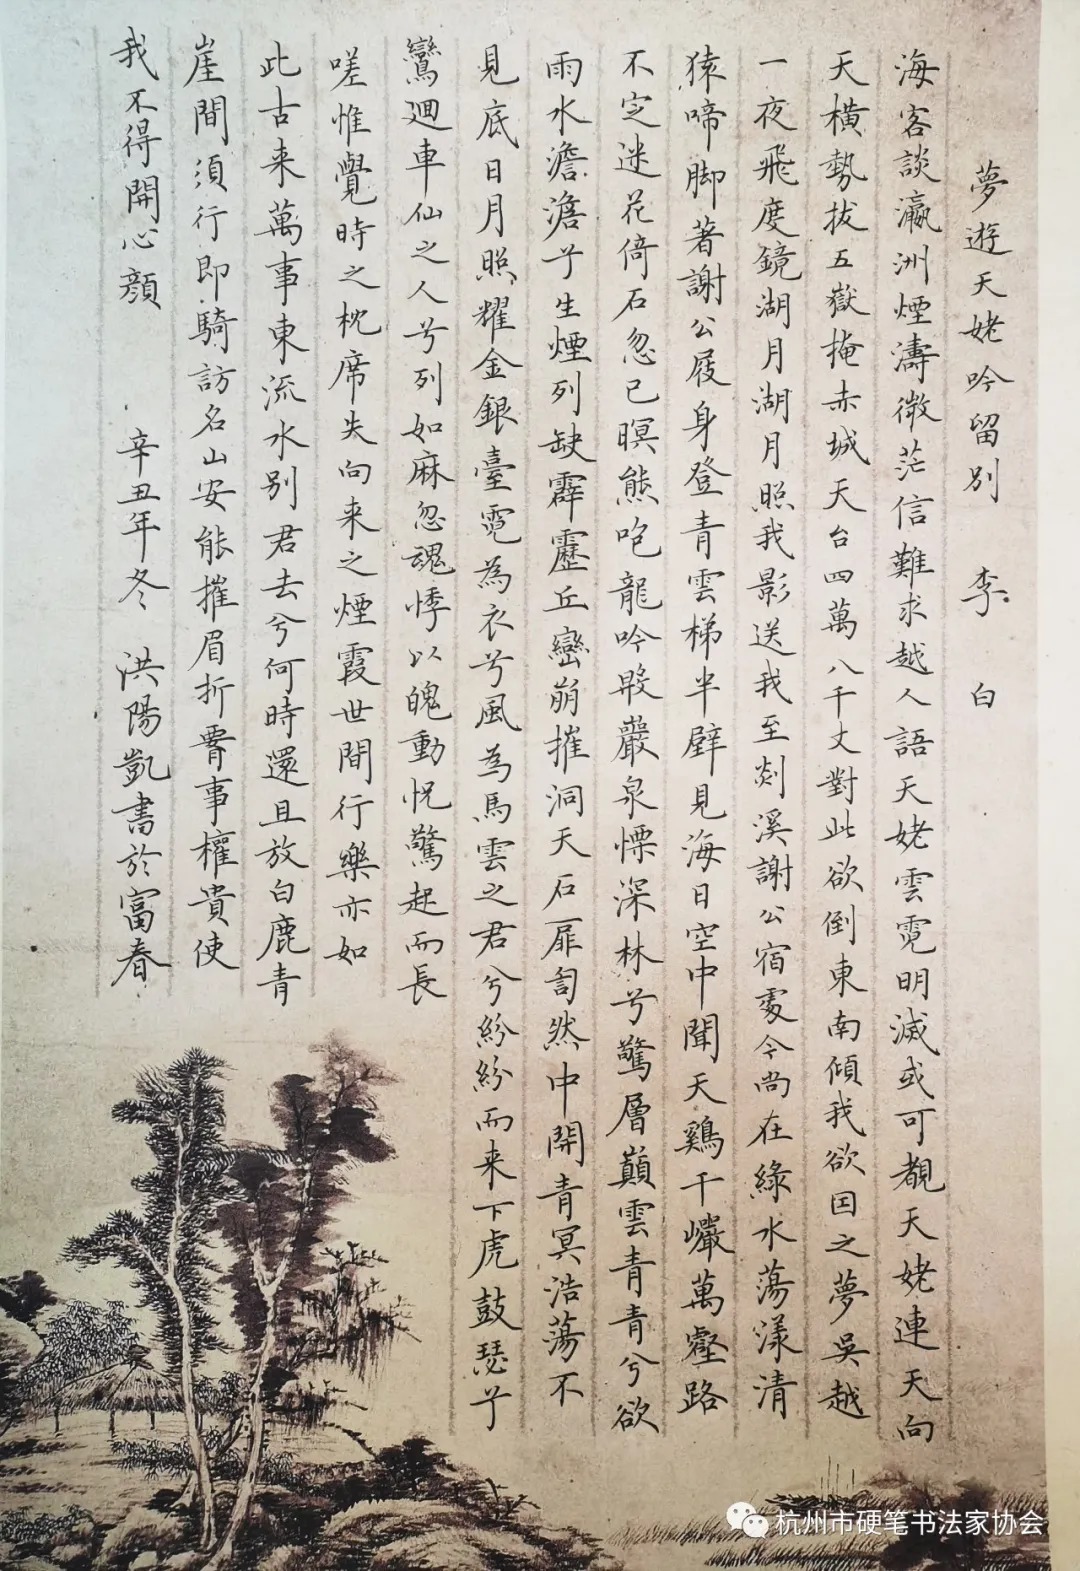 夢遊天姥吟留別 李白
海客談瀛洲煙濤微茫信難求越人語天姥雲霓明滅或可覩天姥連天向
天橫勢拔五嶽掩赤城天台四萬八千丈對此欲倒東南傾我欲因之夢吳越
一夜飛度鏡湖月湖月照我影送我至剡溪謝公宿處今尚在綠水蕩漾清
猿啼腳著謝公屐身登青雲梯半壁見海日空中聞天鷄千巖萬壑路
不定迷花倚石忽已暝熊咆龍吟殷巖泉慄深林兮驚層巔雲青青兮欲
雨水澹澹兮生煙列缺霹靂丘巒崩摧洞天石扉訇然中開青冥浩蕩不
見底日月照耀金銀臺霓為衣兮風為馬雲之君兮紛紛而来下虎鼓瑟兮
鸞迴車仙之人兮列如麻忽魂悸以魄動怳驚起而長
嗟惟覺時之枕席失向来之煙霞世間行樂亦如
此古来萬事東流水別君去兮何時還且放白鹿青
崖間須行即騎訪名山安能摧眉折腰事權貴使
我不得開心顏 辛丑年冬 洪陽凱書於富春
杭州市硬笔书法家协会